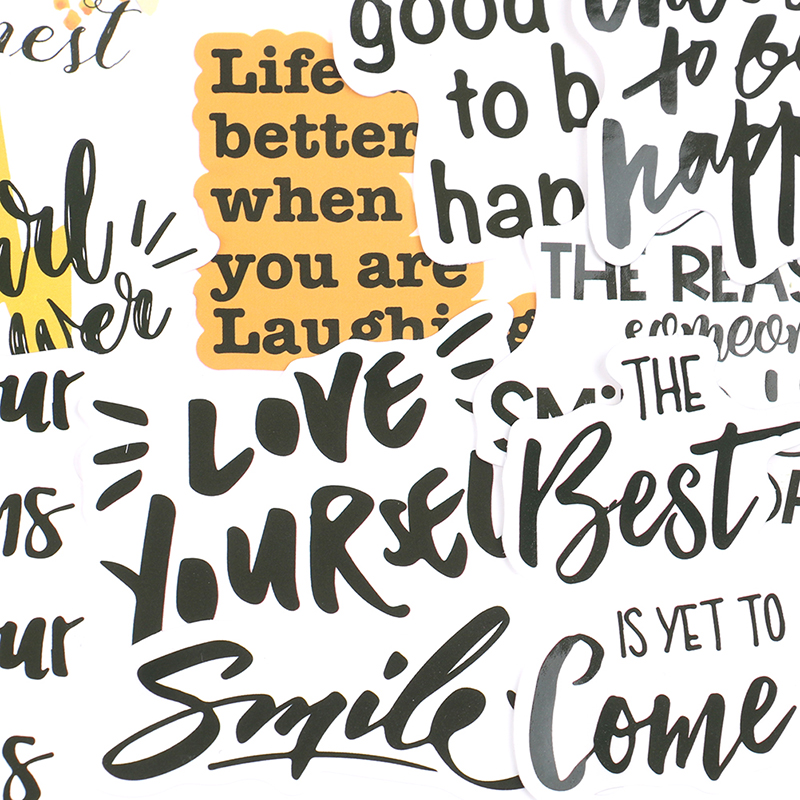 Life
better
when
you are
Laughing
good
to b
hap
to be
happ
THE REAS
someon
SMi
LOVE
YOURSEL
Smile
THE
Best
IS YET TO
Come
irl
ower
ur
ns
ur
s